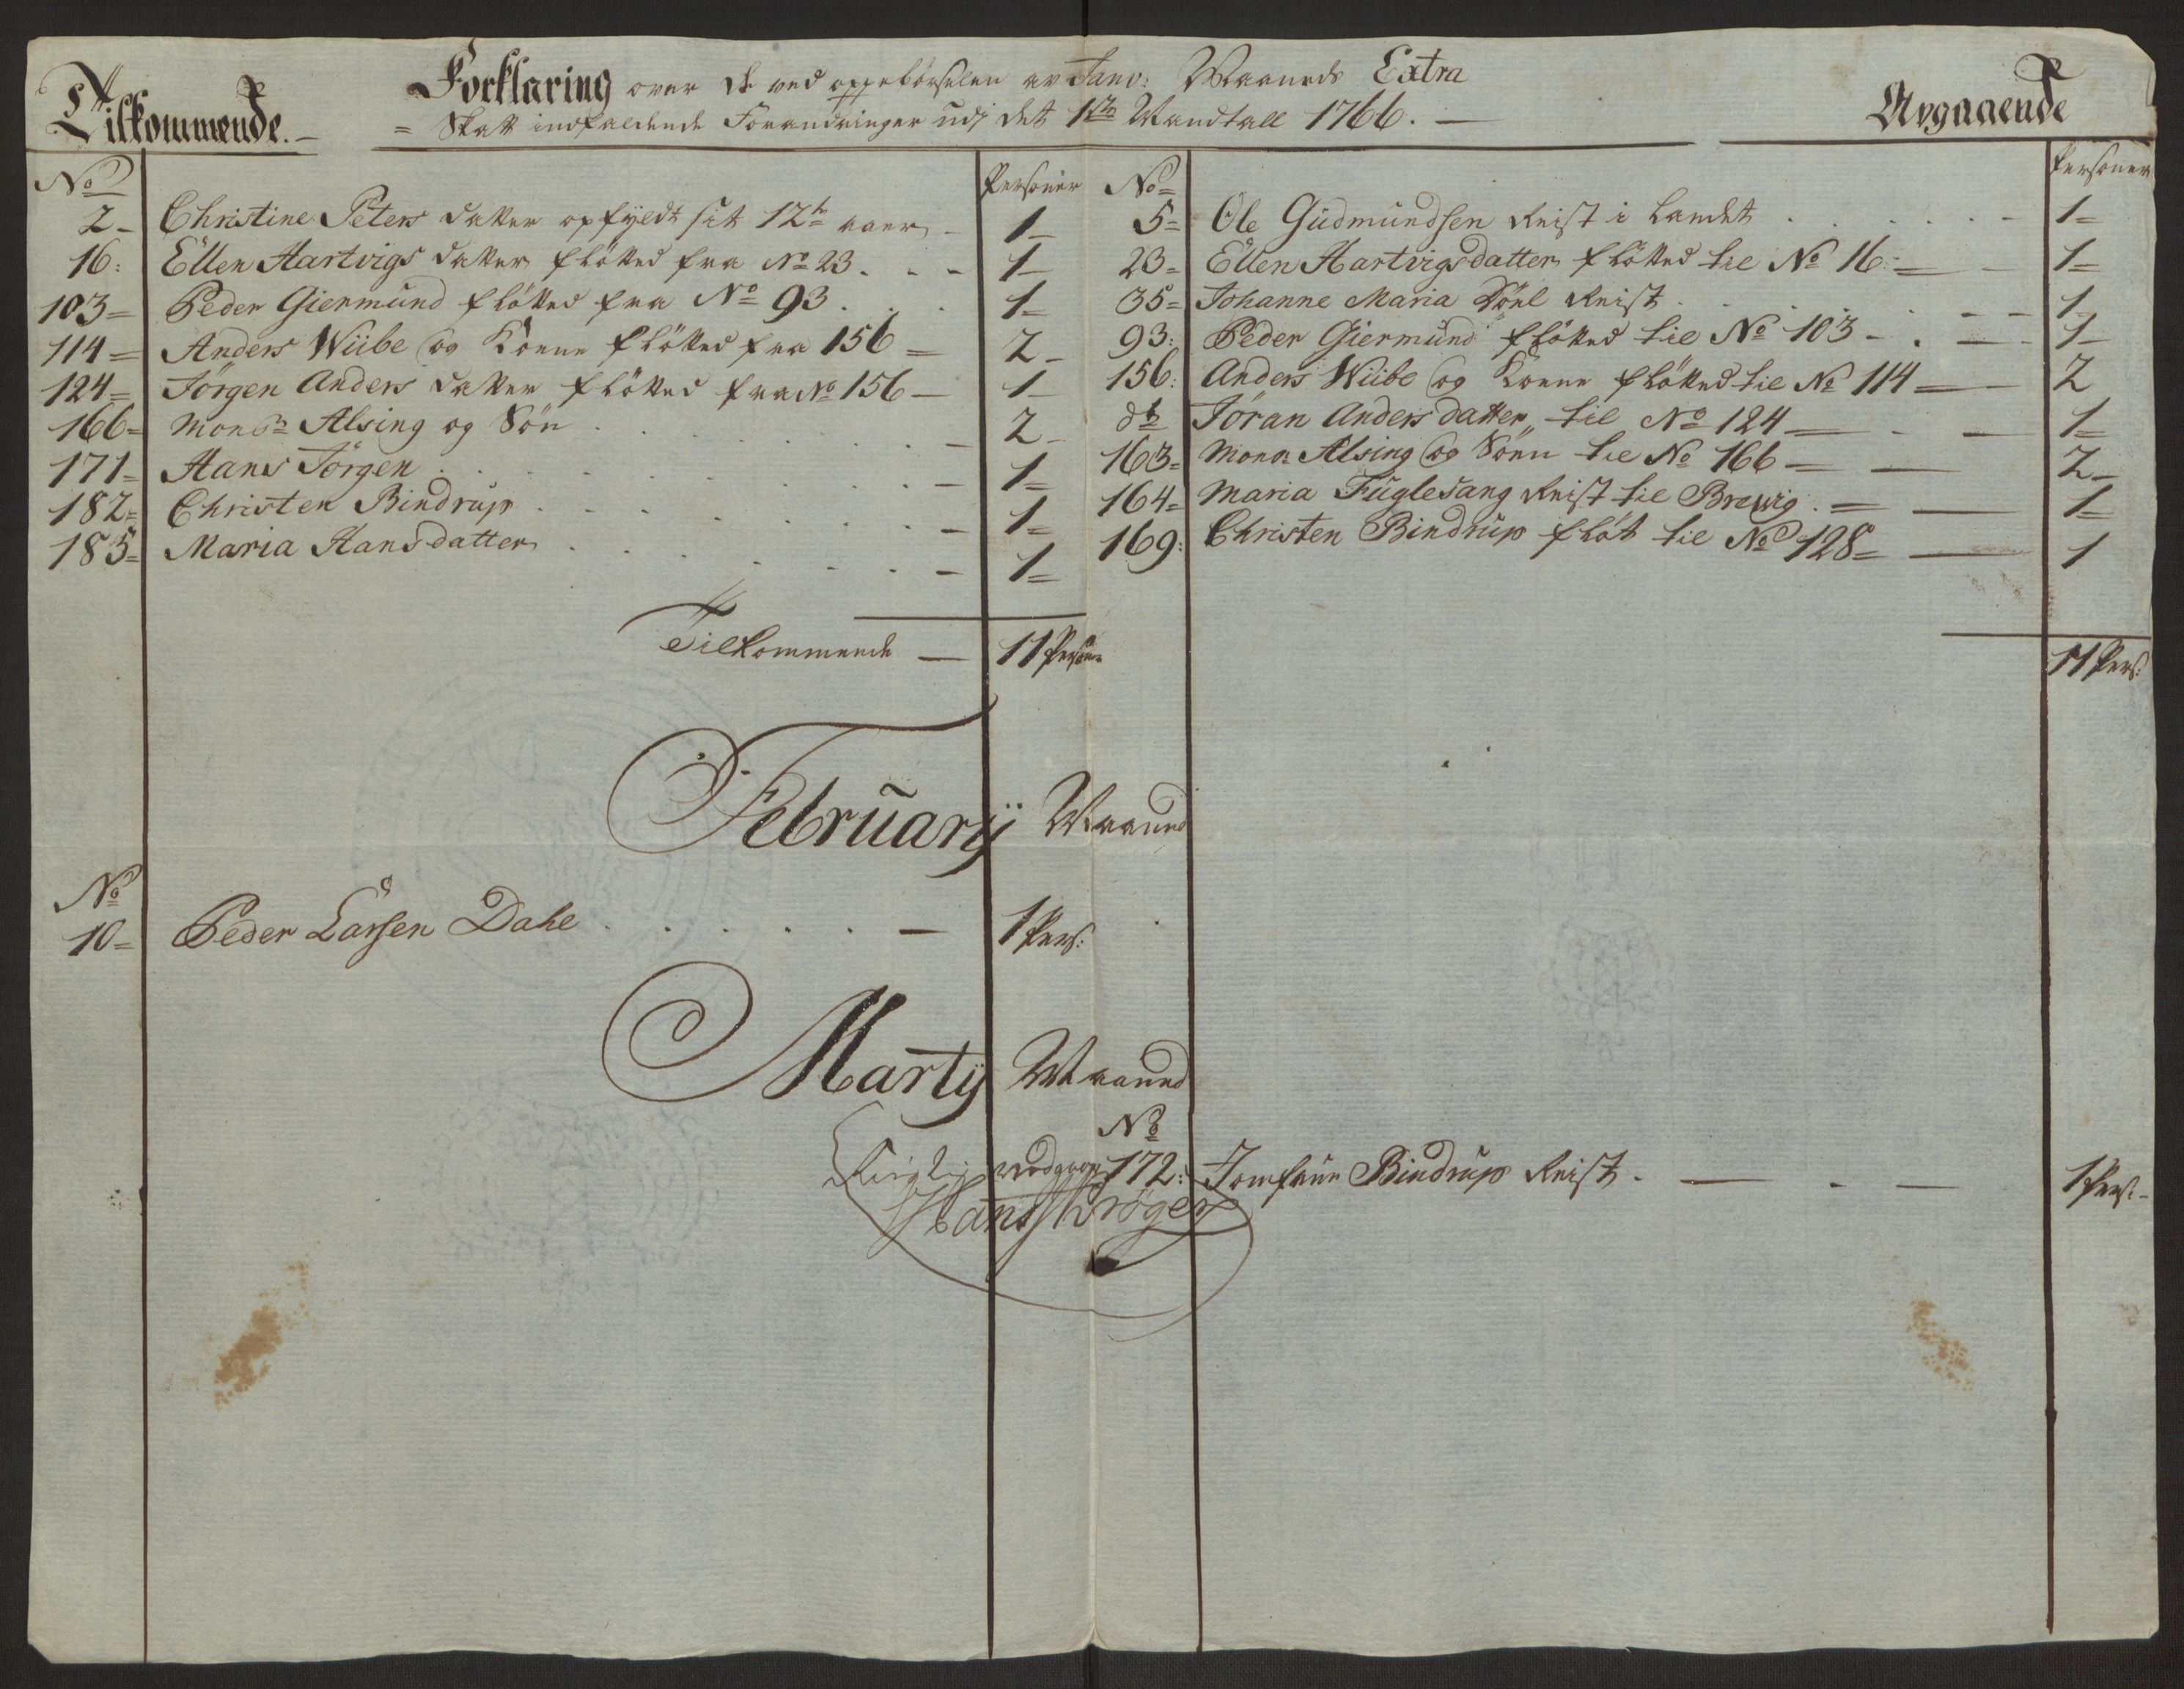 Tilkommende.
Forklaring over de ved oppebørselen av Janv: Maaneds Extra
= Skatt indfaldende Forandringer udj det 1ste Mandtall 1766. —
Avgaaende
No Personer
2- Christine Peters datter opfyldt sit 12te aar - 1-
16: Ellen Hartvigs datter fløtted fra No 23. - - 1-
103= Peder Giermund fløtted fra No 93 . . 1-
114= Anders Wiibe og Koene fløtted fra 156 = 2-
124= Jörgen Anders datter fløtted fra No 156 - 1-
166= Monsr Alsing og Sön . . . . 2-
171= Hans Jörgen . . . . 1=
182= Christen Bindrup . . . . 1=
185= Maria Hansdatter . . . . 1=
Tilkommende — 11 Personer
No= Personer
5= Ole Gudmundsen Reist i Landet . . . . 1=
23= Ellen Hartvigsdatter fløtted til No 16:- - 1=
35= Johanne Maria Reist . . . . 1-
93: Peder Giermund fløtted til No 103 - . — 1-
156: Anders Wiibe og Koene fløtted til No 114 — 2
do Jöran Anders datter til No 124 — . — 1=
163= Monsr Alsing og Sönn til No 166 — — 2-
164= Maria Fuglesang Reist til Brevig . = — 1=
169: Christen Bindrup fløt til No 128 = — 1
11 Pers:
February Maaned
No
10= Peder Larsen Dahl . . . . . - 1 Pers:
Marty Maaned
No
172: Jomfrue Bindrup Reist . — . — 1 Pers:-
Rigtig vedgaaes
Hans Kröger